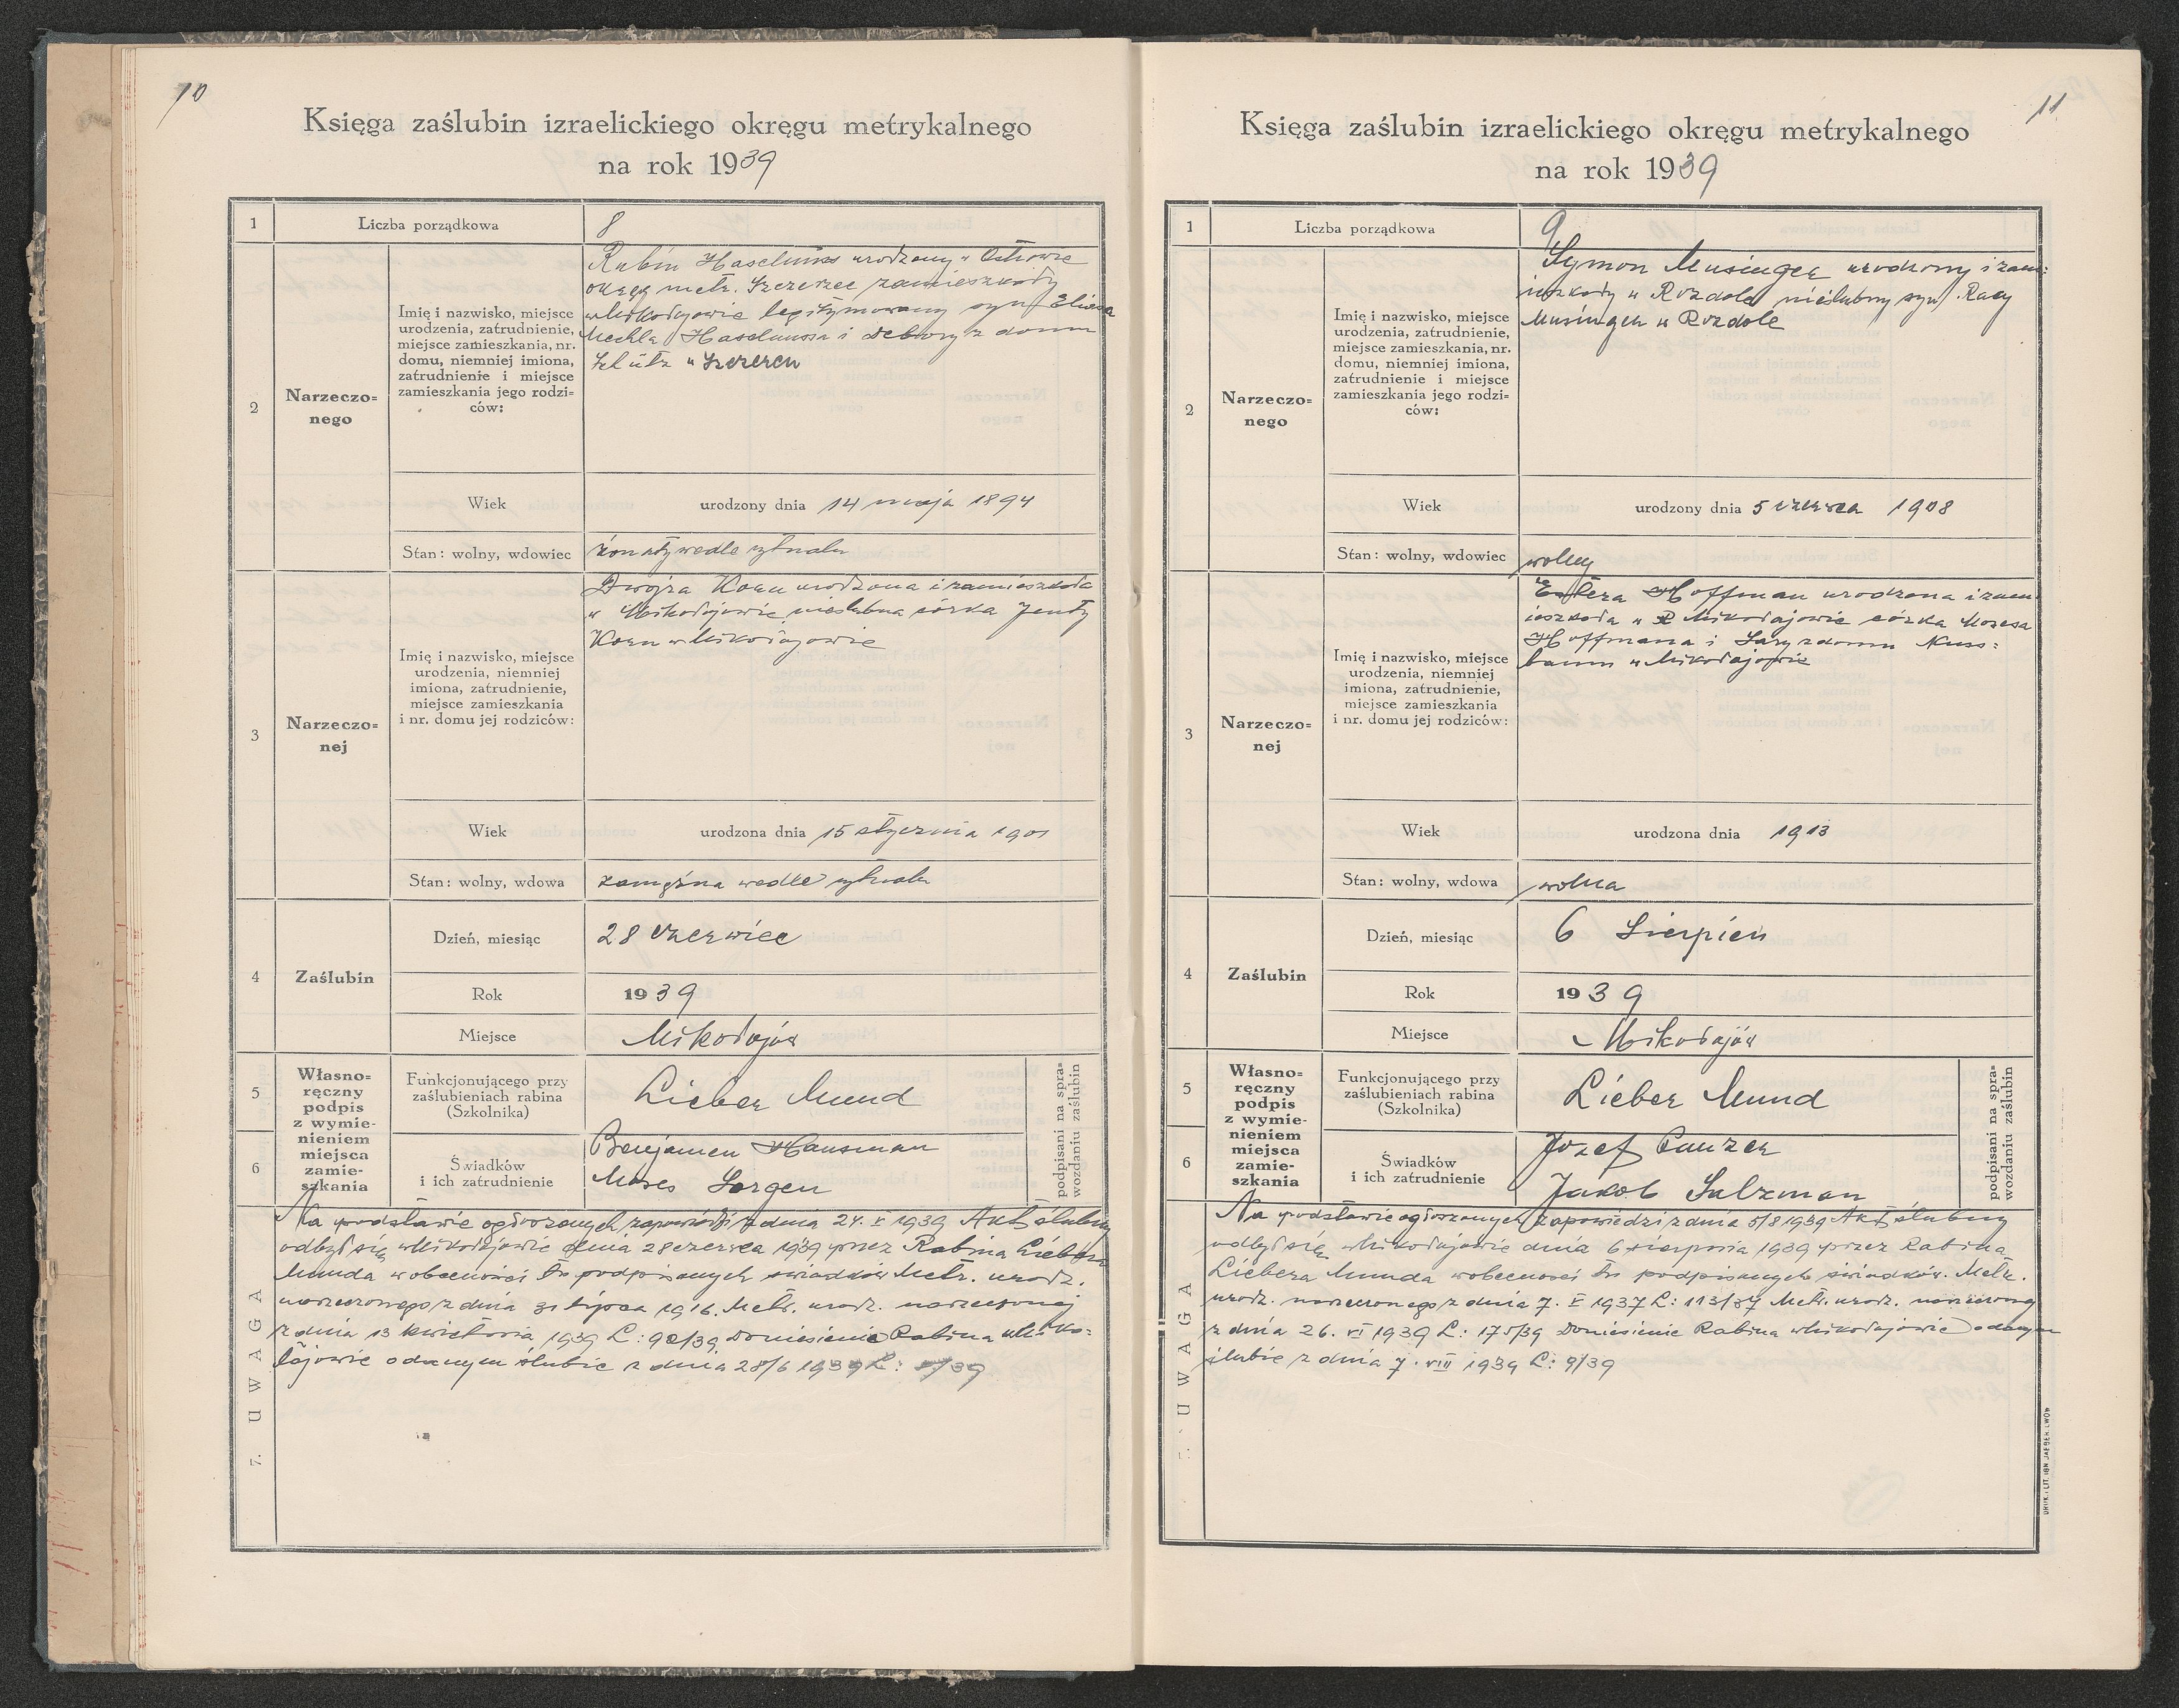 10
Księga zaślubin izraelickiego okręgu metrykalnego
na rok 1939
1
Liczba porządkowa
8
2
Narzeczo=
nego
Imię i nazwisko, miejsce
urodzenia, zatrudnienie,
miejsce zamieszkania, nr.
domu, niemniej imiona,
zatrudnienie i miejsce
zamieszkania jego rodzi=
ców:
Rubin urodzony w Ostrowie
okręg metr. Szczerzec zamieszkały
w Mikołajowie legitymowany syn
Mechla i Debory z domu
Wiek
urodzony dnia 14 maja 1894
Stan: wolny, wdowiec
żonaty wedle rytuału
3
Narzeczo=
nej
Imię i nazwisko, miejsce
urodzenia, niemniej
imiona, zatrudnienie,
miejsce zamieszkania
i nr. domu jej rodziców:
Dwojra Korn urodzona i zamieszkała
w Mikołajowie nieślubna córka Jenty
Korn w Mikołajowie
Wiek
urodzona dnia 15 stycznia 1901
Stan: wolny, wdowa
zamężna wedle rytuału
4
Zaślubin
Dzień, miesiąc
28 czerwiec
Rok
1939
Miejsce
Mikołajów
5
6
Własno=
ręczny
podpis
z wymie-
nieniem
miejsca
zamie-
szkania
Funkcjonującego przy
zaślubieniach rabina
(Szkolnika)
Lieber Mund
Świadków
i ich zatrudnienie
Benjamen Hausman
Moses Sorgen
podpisani na spra=
wozdaniu zaślubin
7. UWAGA
Na podstawie ogłoszonych zapowiedzi z dnia 24. 1939 Akt ślubny
odbył się w Mikołajowie dnia 28 czerwca 1939 przez Rabina Liebera
Munda w obecności tu podpisanych świadków Metr. urodz.
narzeczonego z dnia 31 lipca 1916. Metr. urodz. narzeczonej
z dnia 13 kwietnia 1939 L: 90/39 Doniesienie Rabina w Miko=
łajowie o danym ślubie z dnia 28/6 1939 L: /39
11
Księga zaślubin izraelickiego okręgu metrykalnego
na rok 1939
1
Liczba porządkowa
9
2
Narzeczo=
nego
Imię i nazwisko, miejsce
urodzenia, zatrudnienie,
miejsce zamieszkania, nr.
domu, niemniej imiona,
zatrudnienie i miejsce
zamieszkania jego rodzi=
ców:
Symon Musinger urodzony i zam=
ieszkały w Rozdole nieślubny syn
Musinger w Rozdole
Wiek
urodzony dnia 5 czerwca 1908
Stan: wolny, wdowiec
wolny
3
Narzeczo=
nej
Imię i nazwisko, miejsce
urodzenia, niemniej
imiona, zatrudnienie,
miejsce zamieszkania
i nr. domu jej rodziców:
Estera Hoffman urodzona i zam
ieszkała w Mikołajowie córka Mozesa
Hoffmana i Sary z domu Nuss=
baum w Mikołajowie
Wiek
urodzona dnia 1913
Stan: wolny, wdowa
wolna
4
Zaślubin
Dzień, miesiąc
6 Sierpień
Rok
1939
Miejsce
Mikołajów
5
6
Własno=
ręczny
podpis
z wymie-
nieniem
miejsca
zamie-
szkania
Funkcjonującego przy
zaślubieniach rabina
(Szkolnika)
Lieber Mund
Świadków
i ich zatrudnienie
Jozef
Jakob Salzman
podpisani na spra=
wozdaniu zaślubin
7. UWAGA
Na podstawie ogłoszonych zapowiedzi z dnia 5/8 1939 Akt ślubny
odbył się w Mikołajowie dnia 6 sierpnia 1939 przez Rabina
Liebera Munda w obecności tu podpisanych świadków. Metr.
urodz. narzeczonego z dnia 7. 1937 L: 113/37 Metr. urodz. narzeczonej
z dnia 26. VI 1939 L: 175/39 Doniesienie Rabina w Mikołajowie o danym
ślubie z dnia 7. VIII 1939 L: 9/39